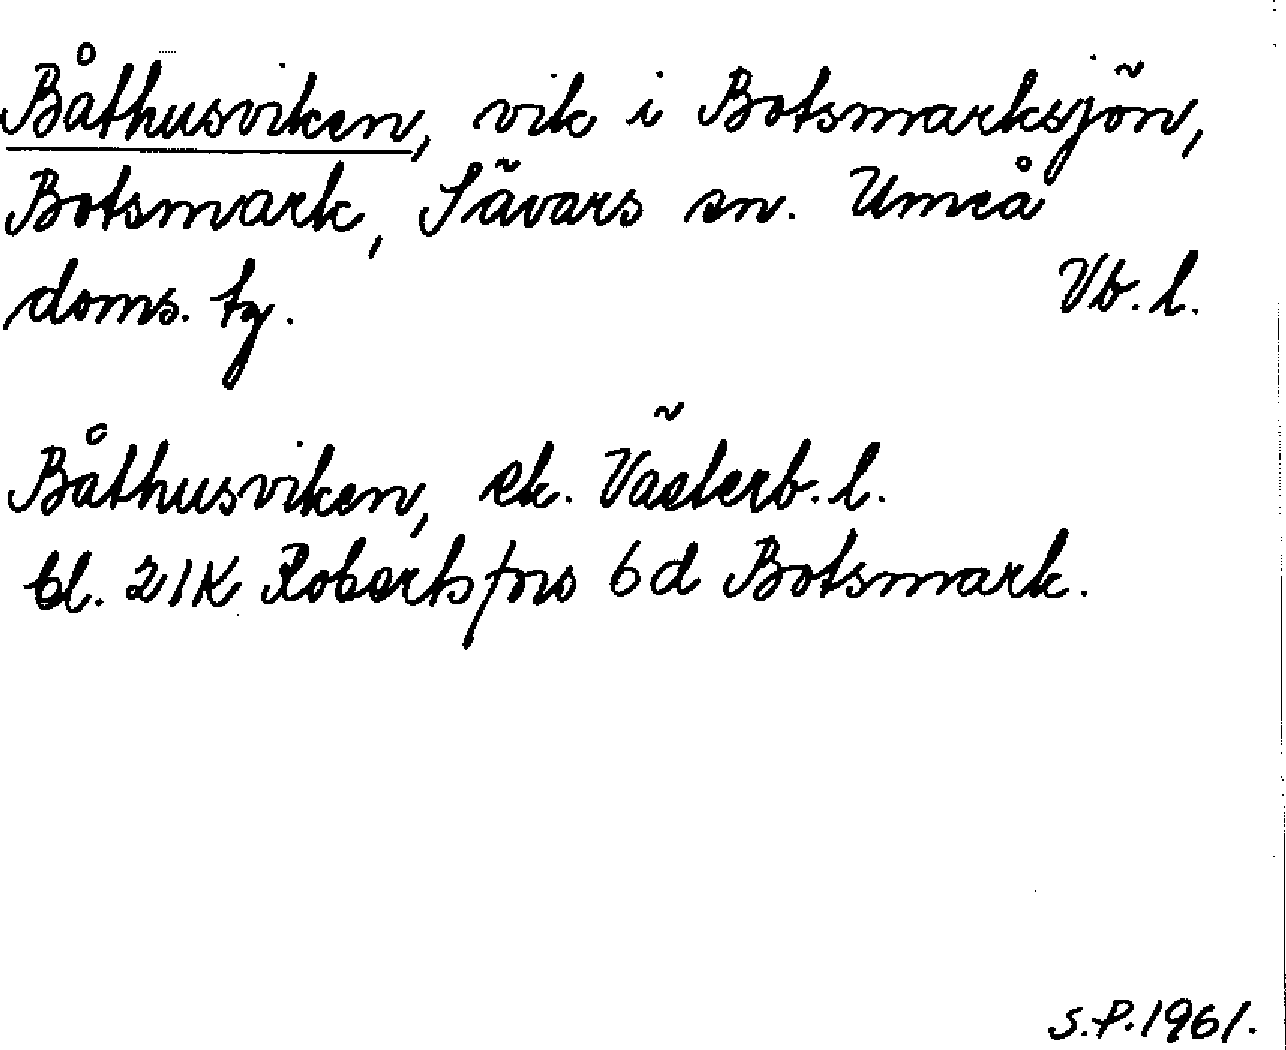 Båthusviken, vik i Botsmarksjön,
Botsmark, Sävars sn. Umeå
doms. tg. Vb. l.
Båthusviken, ek. Västerb. l.
bl. 21K Robertsfors 6d Botsmark.
S.P. 1961.